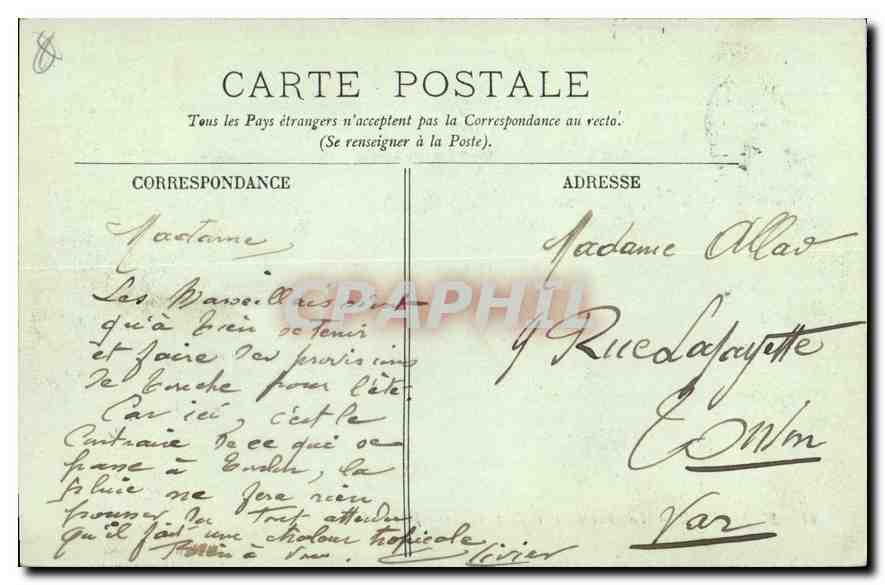 8
CARTE POSTALE
Tous les Pays étrangers n'acceptent pas la Correspondance au recto.
(Se renseigner à la Poste).
CORRESPONDANCE
ADRESSE
Madame
Les Marseillais n'ont
qu'à bien se tenir
et faire des provisions
de bouche pour l'été.
Car ici, c'est le
Contraire de ce qui se
passe à Toulon, la
pluie ne fera rien
pousser du tout attendu
qu'il fait une chaleur tropicale
à vous. Olivier
Madame Allav
9 Rue Lafayette
Toulon
Var
CPAPHIL